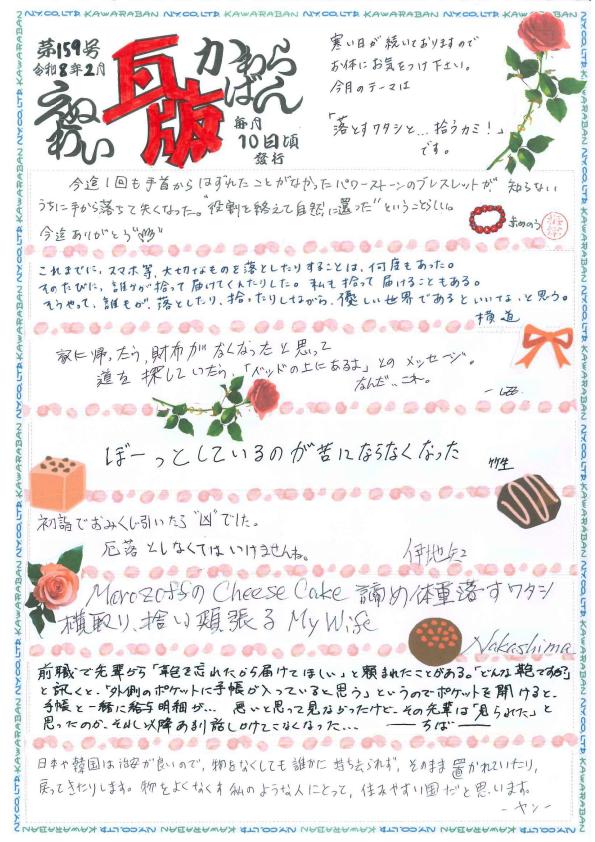 第159号
令和8年2月
瓦版
かわらばん
毎月
10日頃
発行
寒い日が続いておりますので
お体にお気をつけ下さい。
今月のテーマは
「落とすワタシと…拾うカミ！」
です。
今迄1回も手首からはずれたことがなかったパワーストーンのブレスレットが、知らない
うちに手から落ちて失くなった。"役割を終えて自然に還った"ということらしい。
今迄ありがとう
これまでに、スマホ等、大切なものを落としたりすることは、何度もあった。
そのたびに、誰かが拾って届けてくれたりした。私も拾って届けることもある。
そうやって、誰もが、落としたり、拾ったりしながら、優しい世界であるといいな、と思う。
横道
家に帰ったら、財布がなくなったと思って
道を探していたら、「ベッドの上にあるよ」とのメッセージ。
なんだ、これ。
ぼーっとしているのが苦にならなくなった
竹生
初詣でおみくじ引いたら"凶"でした。
厄落としなくてはいけませんね。
伊地知
MorozoffのCheese Cake 諦め体重落すワタシ
横取り、拾い頬張る My Wife
Nakashima
前職で先輩から「鞄を忘れたから届けてほしい」と頼まれたことがある。「どんな鞄ですか?」
と訊くと、「外側のポケットに手帳が入っていると思う」というのでポケットを開けると、
手帳と一緒に給与明細が… 悪いと思って見なかったけど、その先輩は「見られた」と
思ったのか、それ以降あまり話しかけてこなくなった…
ちば
日本や韓国は治安が良いので、物をなくしても誰かに持ち去られず、そのまま置かれていたり、
戻ってきたりします。物をよくなくす私のような人にとって、住みやすい国だと思います。
-ヤン-
N.Y.CO.,LTD. KAWARABAN